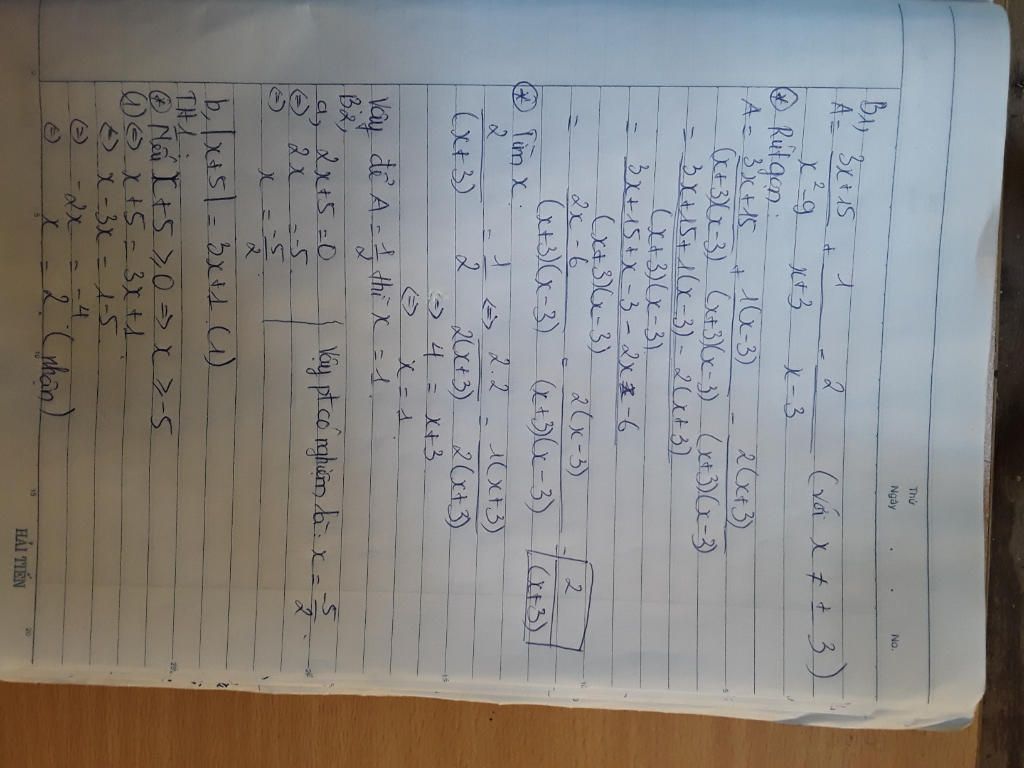 Thứ
Ngày . . No.
B1,
A = \frac{3x+15}{x²-9} + \frac{1}{x+3} - \frac{2}{x-3} (với x ≠ ± 3)
⊛ Rút gọn:
A = \frac{3x+15}{(x+3)(x-3)} + \frac{1(x-3)}{(x+3)(x-3)} - \frac{2(x+3)}{(x+3)(x-3)}
= \frac{3x+15+1(x-3)-2(x+3)}{(x+3)(x-3)}
= \frac{3x+15+x-3-2x-6}{(x+3)(x-3)}
= \frac{2x-6}{(x+3)(x-3)} = \frac{2(x-3)}{(x+3)(x-3)} = \frac{2}{(x+3)}
⊛ Tìm x:
\frac{2}{(x+3)} = \frac{1}{2} <=> \frac{2.2}{2(x+3)} = \frac{1(x+3)}{2(x+3)}
<=> 4 = x+3
<=> x = 1
Vậy để A = \frac{1}{2} thì x = 1.
B2,
a, 2x+5=0
<=> 2x = -5
<=> x = \frac{-5}{2}
Vậy pt có nghiệm là: x = \frac{-5}{2}.
b, |x+5| = 3x+1 (1)
TH1:
⊛ Nếu x+5 ≥ 0 => x ≥ -5
(1) <=> x+5 = 3x+1
<=> x-3x = 1-5
<=> -2x = -4
<=> x = 2 (nhận)
HẢI TIẾN